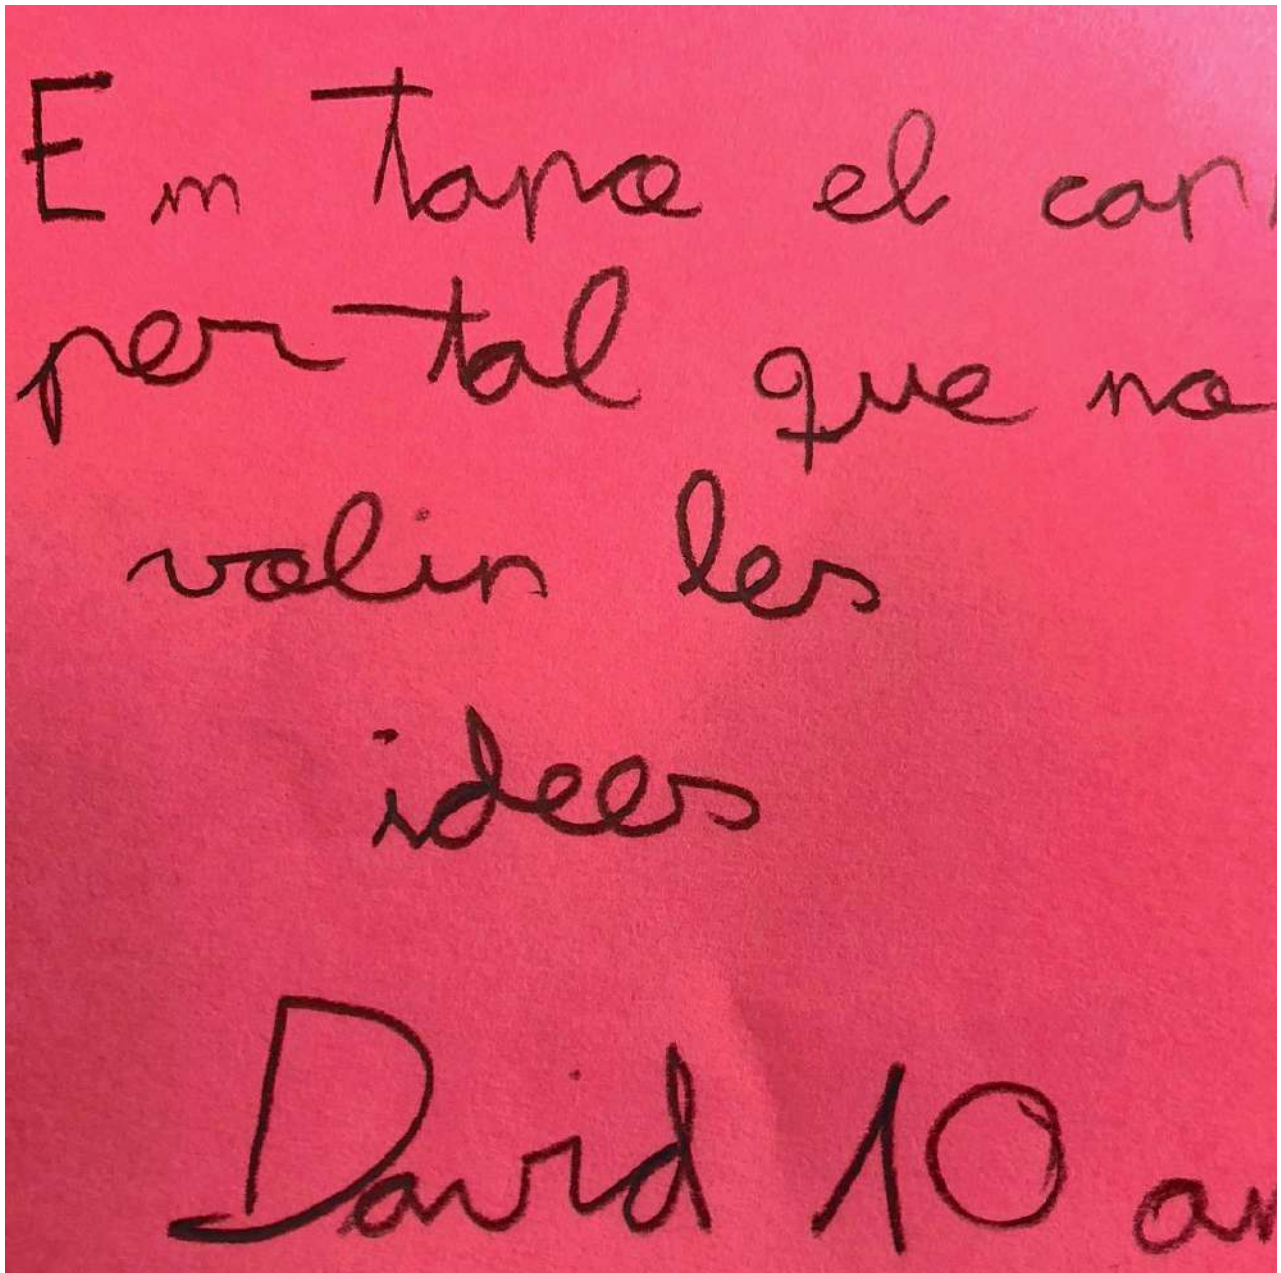 Em tapa el cap
per tal que no
volin les
idees
David 10 an